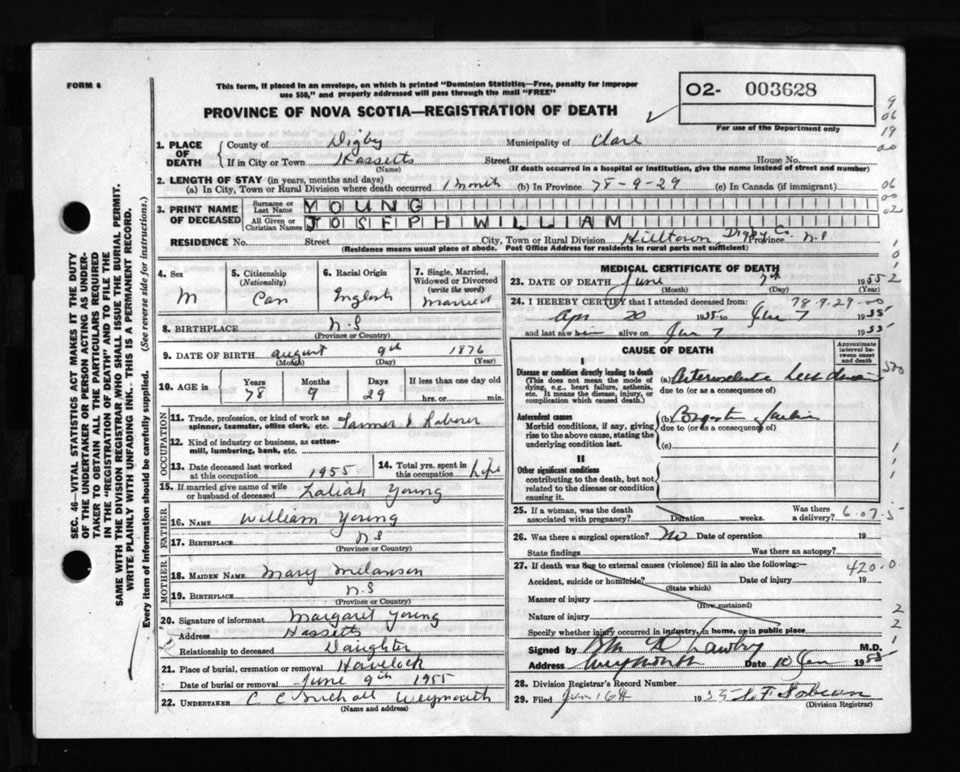 FORM 6
This form, if placed in an envelope, on which is printed "Dominion Statistics—Free, penalty for improper
use $50," and properly addressed will pass through the mail "FREE"
PROVINCE OF NOVA SCOTIA—REGISTRATION OF DEATH
O2- 003628
For use of the Department only
9
06
19
00
06
00
02
SEC. 46—VITAL STATISTICS ACT MAKES IT THE DUTY
OF THE UNDERTAKER OR PERSON ACTING AS UNDER-
TAKER TO OBTAIN ALL THE PARTICULARS REQUIRED
IN THE "REGISTRATION OF DEATH" AND TO FILE THE
SAME WITH THE DIVISION REGISTRAR WHO SHALL ISSUE THE BURIAL PERMIT.
WRITE PLAINLY WITH UNFADING INK. THIS IS A PERMANENT RECORD.
Every item of information should be carefully supplied. (See reverse side for instructions.)
1. PLACE OF DEATH
County of Digby Municipality of Clare
If in City or Town Hassetts Street House No.
(Name) (If death occurred in a hospital or institution, give the name instead of street and number)
2. LENGTH OF STAY (in years, months and days)
(a) In City, Town or Rural Division where death occurred 1 month (b) In Province 78-9-29 (c) In Canada (if immigrant)
3. PRINT NAME OF DECEASED
Surname or Last Name YOUNG
All Given or Christian Names JOSEPH WILLIAM
RESIDENCE No. Street City, Town or Rural Division Hilltown, Digby Co. Province N.S
(Residence means usual place of abode. Post Office Address for residents in rural parts not sufficient)
4. Sex
M
5. Citizenship
(Nationality)
Can
6. Racial Origin
English
7. Single, Married,
Widowed or Divorced
(write the word)
Married
8. BIRTHPLACE N.S
(Province or Country)
9. DATE OF BIRTH August 9th 1876
(Month) (Day) (Year)
10. AGE in Years 78 Months 9 Days 29 If less than one day old
hrs. or min.
OCCUPATION
11. Trade, profession, or kind of work as
spinner, teamster, office clerk, etc. Farmer & Laborer
12. Kind of industry or business, as cotton-
mill, lumbering, bank, etc.
13. Date deceased last worked
at this occupation 1955
14. Total yrs. spent in
this occupation Life
15. If married give name of wife
or husband of deceased Young
FATHER
16. NAME William Young
17. BIRTHPLACE N.S
(Province or Country)
MOTHER
18. MAIDEN NAME Mary Melanson
19. BIRTHPLACE N.S
(Province or Country)
20. Signature of informant Margaret Young
Address Hassetts
Relationship to deceased Daughter
21. Place of burial, cremation or removal Havelock
Date of burial or removal June 9th 1955
22. UNDERTAKER Weymouth
(Name and address)
MEDICAL CERTIFICATE OF DEATH
23. DATE OF DEATH June 7th 1955
(Month) (Day) (Year)
24. I HEREBY CERTIFY that I attended deceased from: 78.9.29.00
Apr 20 1955 to Jun 7 1955
and last saw him alive on Jun 7 1955
CAUSE OF DEATH
Approximate
interval be-
tween onset
and death
I
Disease or condition directly leading to death
(This does not mean the mode of
dying, e.g., heart failure, asthenia,
etc. It means the disease, injury, or
complication which caused death.)
(a)
due to (or as a consequence of)
Antecedent causes
Morbid conditions, if any, giving
rise to the above cause, stating the
underlying condition last.
(b)
due to (or as a consequence of)
(c)
II
Other significant conditions
contributing to the death, but not
related to the disease or condition
causing it.
25. If a woman, was the death
associated with pregnancy? Duration weeks. Was there
a delivery? 6-07.5
26. Was there a surgical operation? No Date of operation 19
State findings Was there an autopsy?
27. If death was due to external causes (violence) fill in also the following:— 420.0
Accident, suicide or homicide? Date of injury 19
(State which)
Manner of injury
(How sustained)
Nature of injury
Specify whether injury occurred in industry, in home, or in public place
Signed by M.D.
Address Weymouth Date 10 Jun 1955
28. Division Registrar's Record Number
29. Filed June 16th 1955
(Division Registrar)